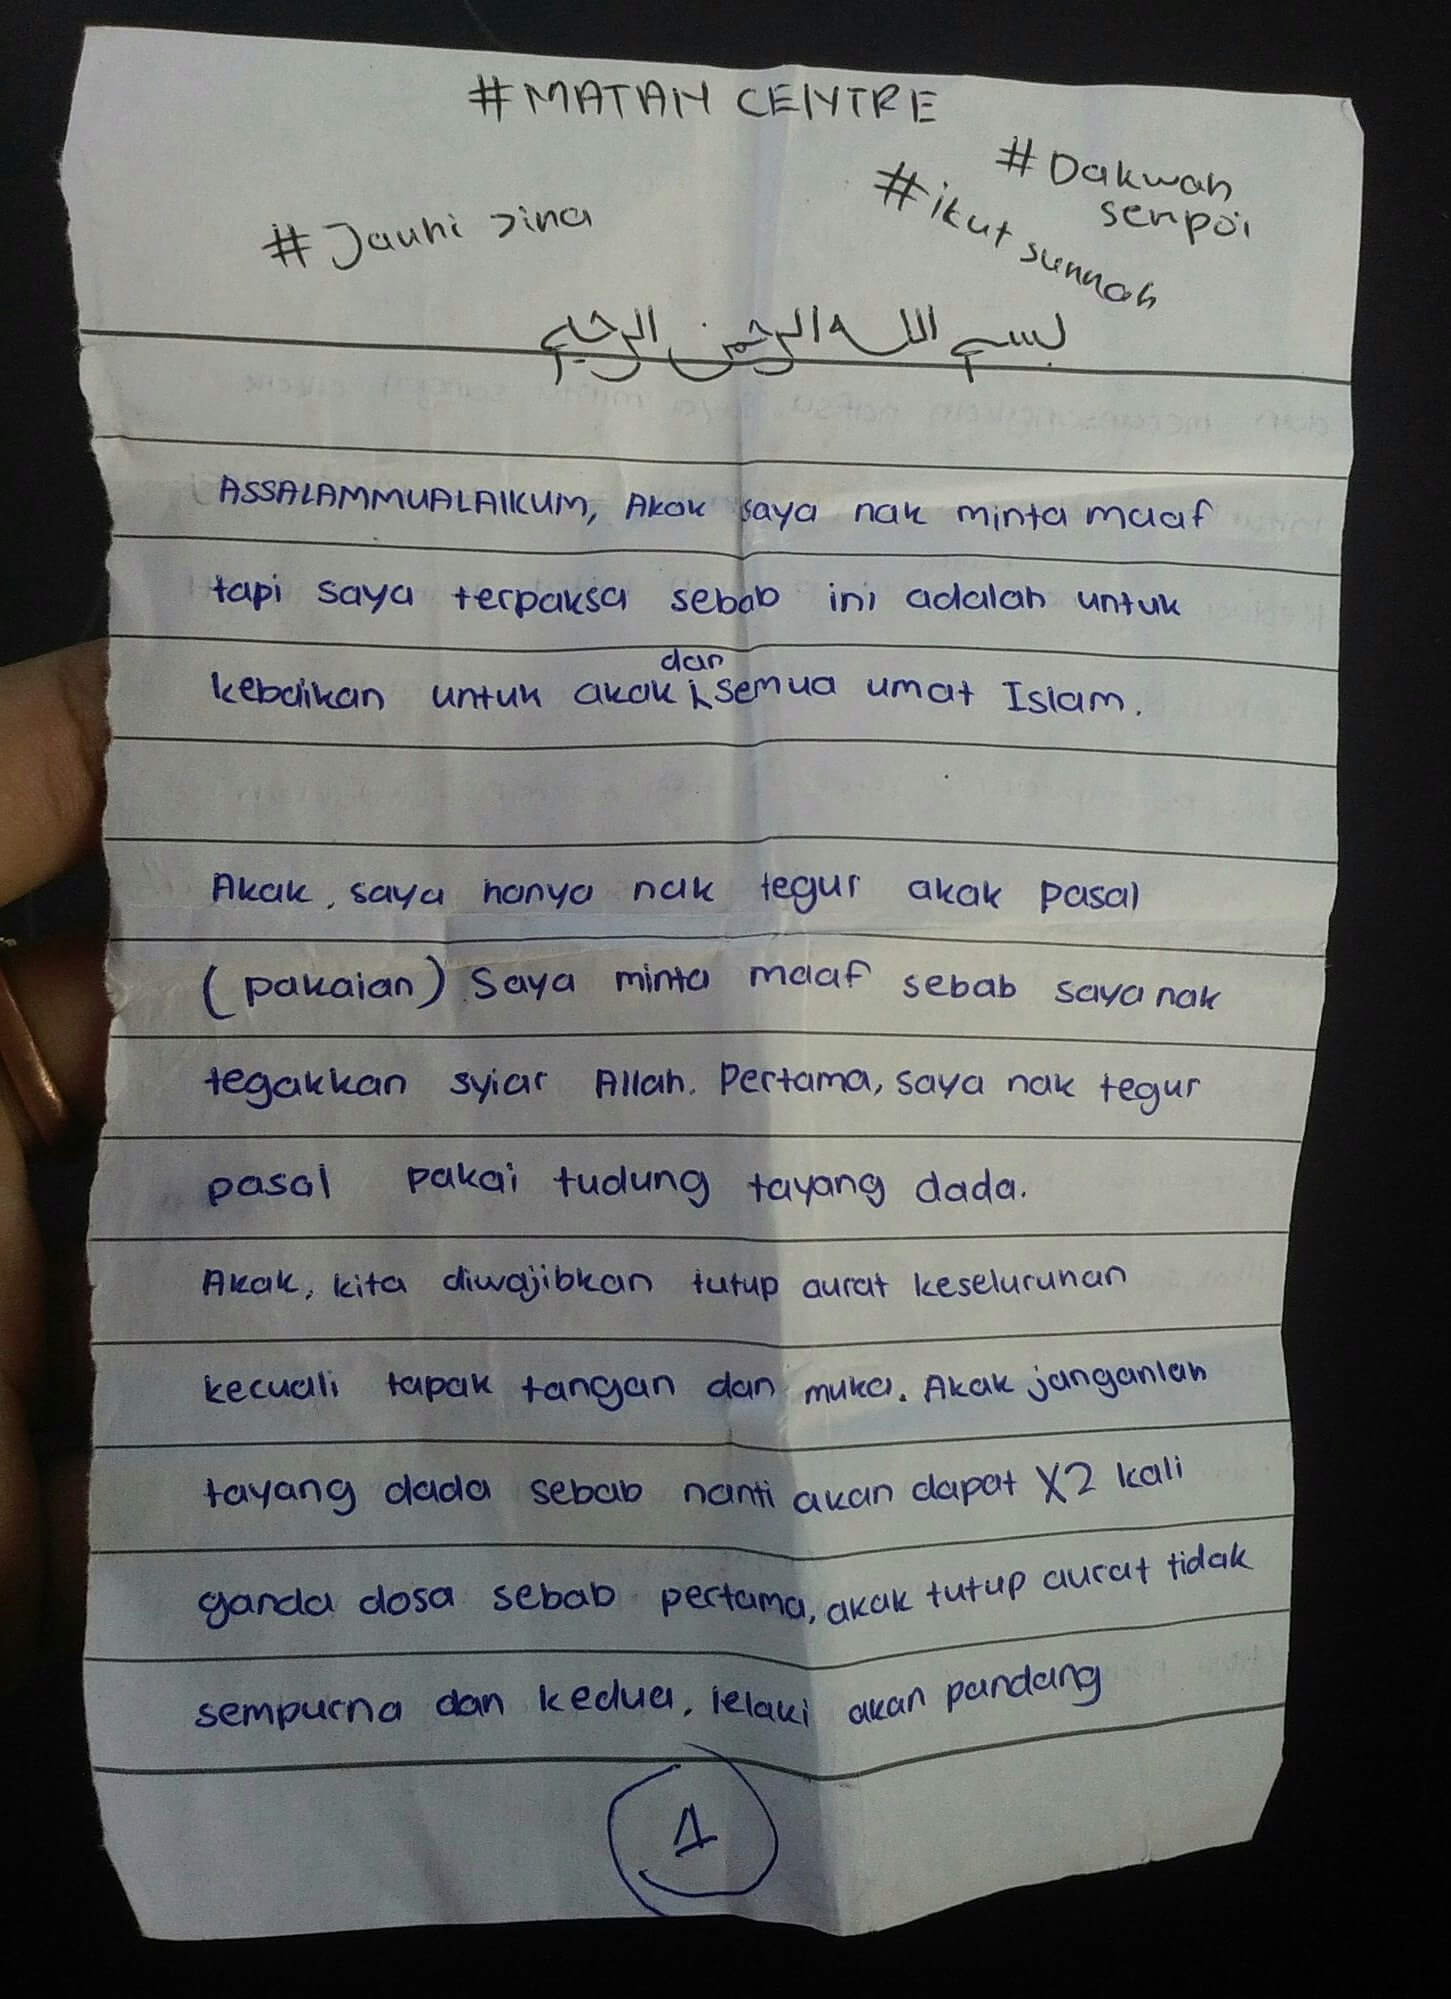 #MATAH CENTRE
#Dakwah
senpoi
#ikut sunnah
#Jauhi zina
بسم الله الرحمن الرحيم
ASSALAMMUALAIKUM, Akak saya nak minta maaf
tapi saya terpaksa sebab ini adalah untuk
kebaikan untuk akak dan semua umat Islam.
Akak, saya hanya nak tegur akak pasal
(pakaian) Saya minta maaf sebab saya nak
tegakkan syiar Allah. Pertama, saya nak tegur
pasal pakai tudung tayang dada.
Akak, kita diwajibkan tutup aurat keseluruhan
kecuali tapak tangan dan muka. Akak janganlah
tayang dada sebab nanti akan dapat X2 kali
ganda dosa sebab pertama, akak tutup aurat tidak
sempurna dan kedua, lelaki akan pandang
1